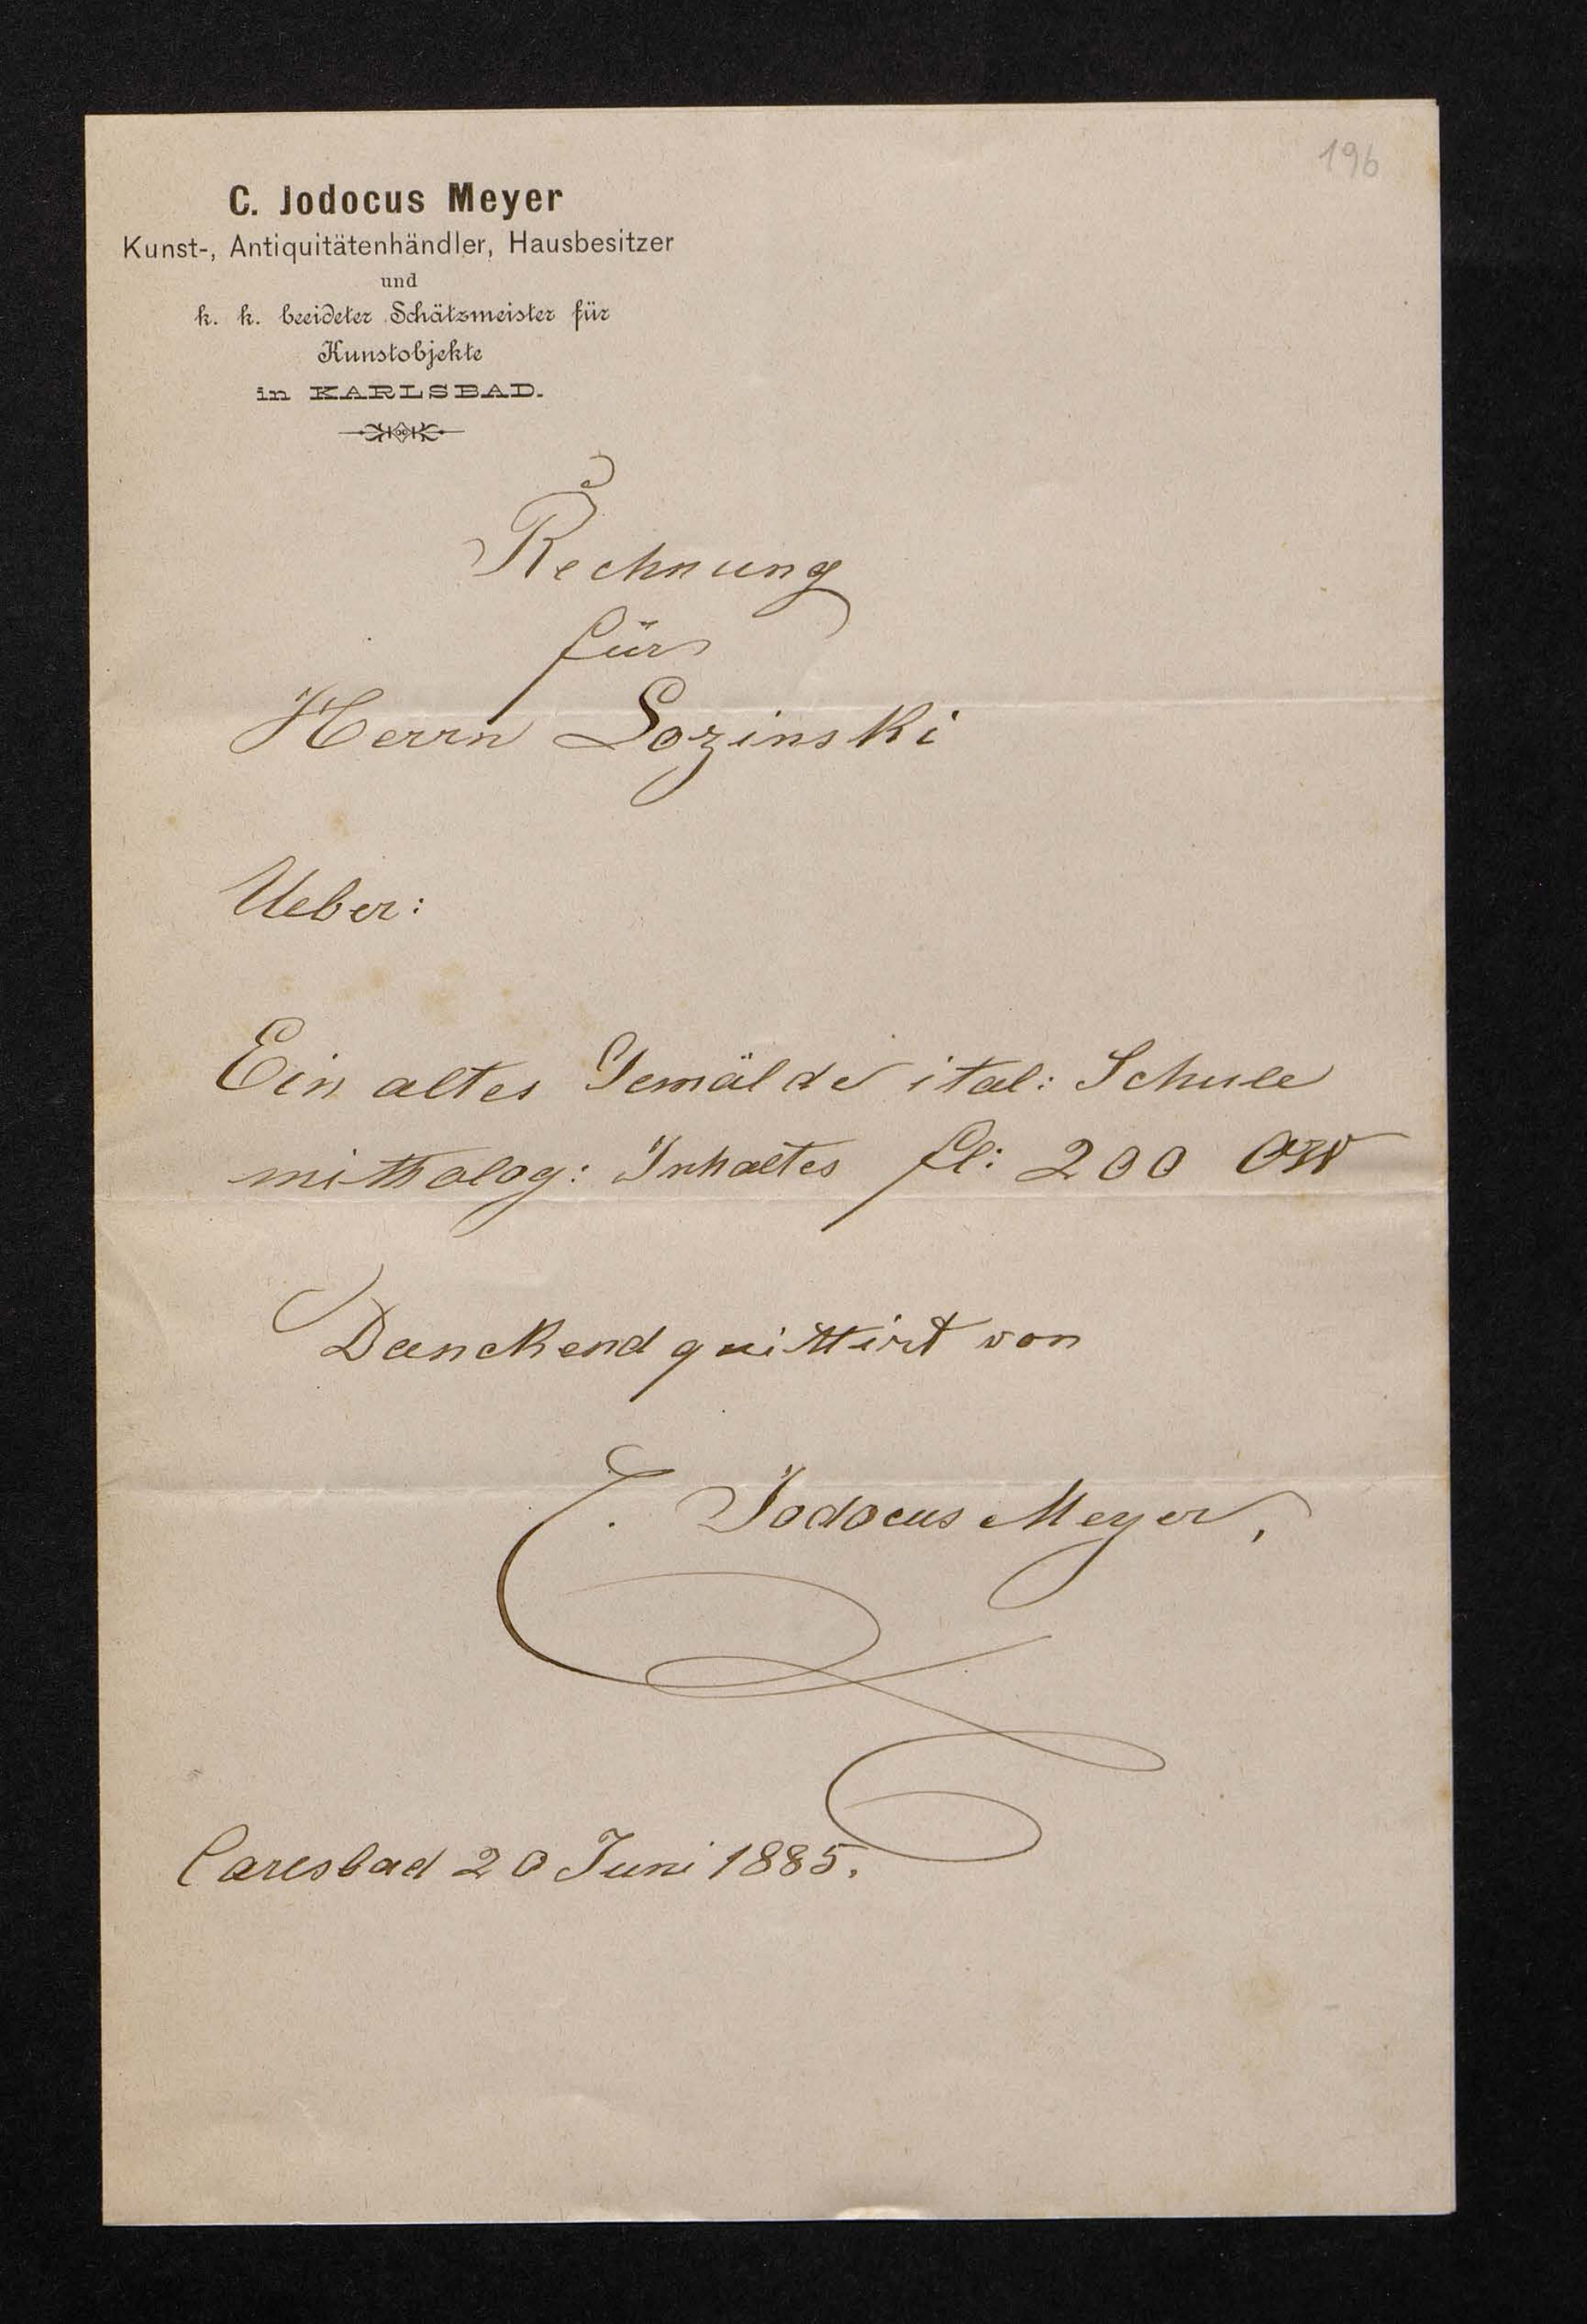 196
C. Jodocus Meyer
Kunst-, Antiquitätenhändler, Hausbesitzer
und
k. k. beeideter Schätzmeister für
Kunstobjekte
in KARLSBAD.
Rechnung
für
Herrn Lozinski
Ueber:
Ein altes Gemälde ital: Schule
mitholog: Inhaltes fl: 200 ÖW
Danckend quittirt von
C. Jodocus Meyer,
Carlsbad 20 Juni 1885.